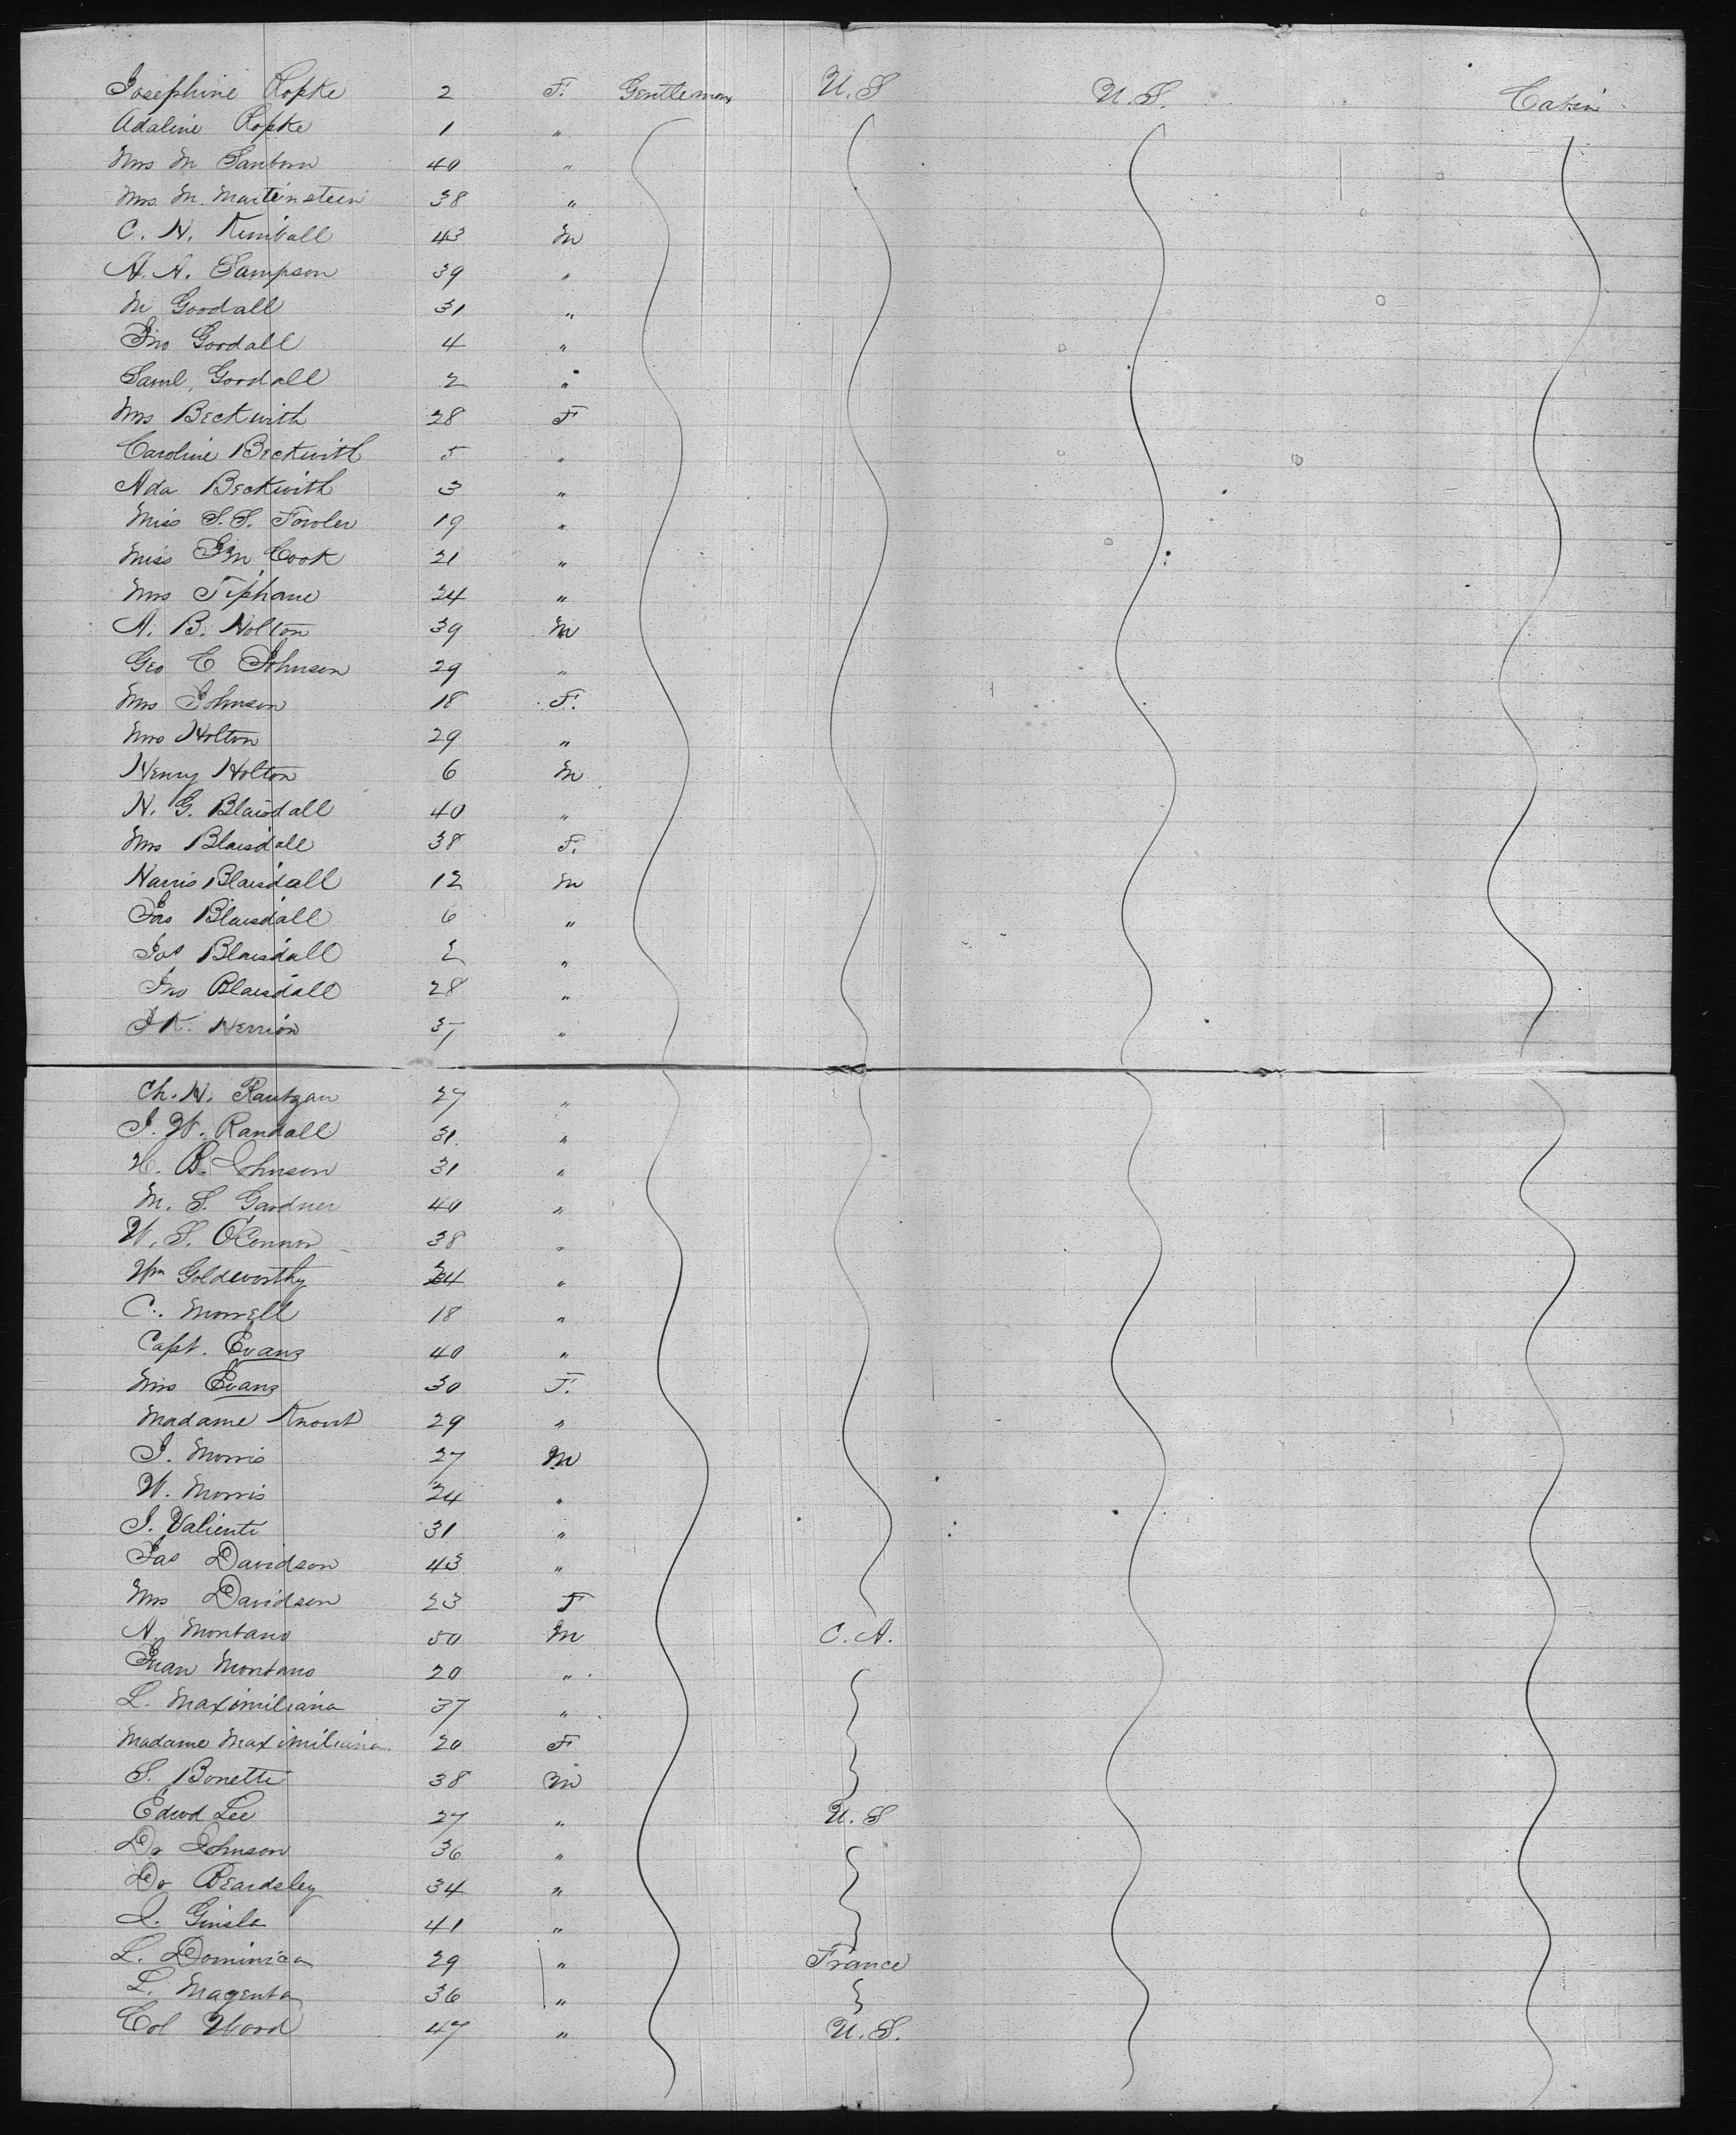 Josephine Ropke 2 F. Gentleman U.S U.S. Cabin
Adaline Ropke 1 "
Mrs M Sanborn 40 "
Mrs. M. Martenstein 38 "
C. H. Kimball 43 M
A. A. Sampson 39 "
M Goodall 31 "
Jno Goodall 4 "
Saml. Goodall 2 "
Mrs Beckwith 28 F
Caroline Beckwith 5 "
Ada Beckwith 3 "
Miss S.S. Fowler 19 "
Miss J M Cook 21 "
Mrs Tiphane 24 "
A. B. Holton 39 M
Geo C Johnson 29 "
Mrs Johnson 18 F.
Mrs Holton 29 "
Henry Holton 6 M
H. G. Blaisdall 40 "
Mrs Blaisdall 38 F.
Harris Blaisdall 12 M
Jas Blaisdall 6 "
Jos Blaisdall 2 "
Jno Blaisdall 28 "
J K. Herrion 37 "
Ch. H. Rantzau 27 "
J. W. Randall 31 "
H. B. Johnson 31 "
M. S. Gardner 40 "
W. S. O'Connor 38 "
Wm Goldsworthy 34 "
C. Morrell 18 "
Capt. Evans 40 "
Mrs Evans 30 F.
Madame Knout 29 "
J. Morris 27 M
W. Morris 24 "
J. Valiente 31 "
Jas Davidson 43 "
Mrs Davidson 23 F
A. Montano 50 M C. A.
Juan Montano 20 "
L. Maximiliana 37 "
Madame Maximiliana 20 F
S. Bonetti 38 M
Edwd Lee 27 " U.S
Dr Johnson 36 "
Dr Beardsley 34 "
J. Ginsla 41 "
L. Dominica 29 " France
L. Magenta 36 "
Col Wood 47 " U.S.